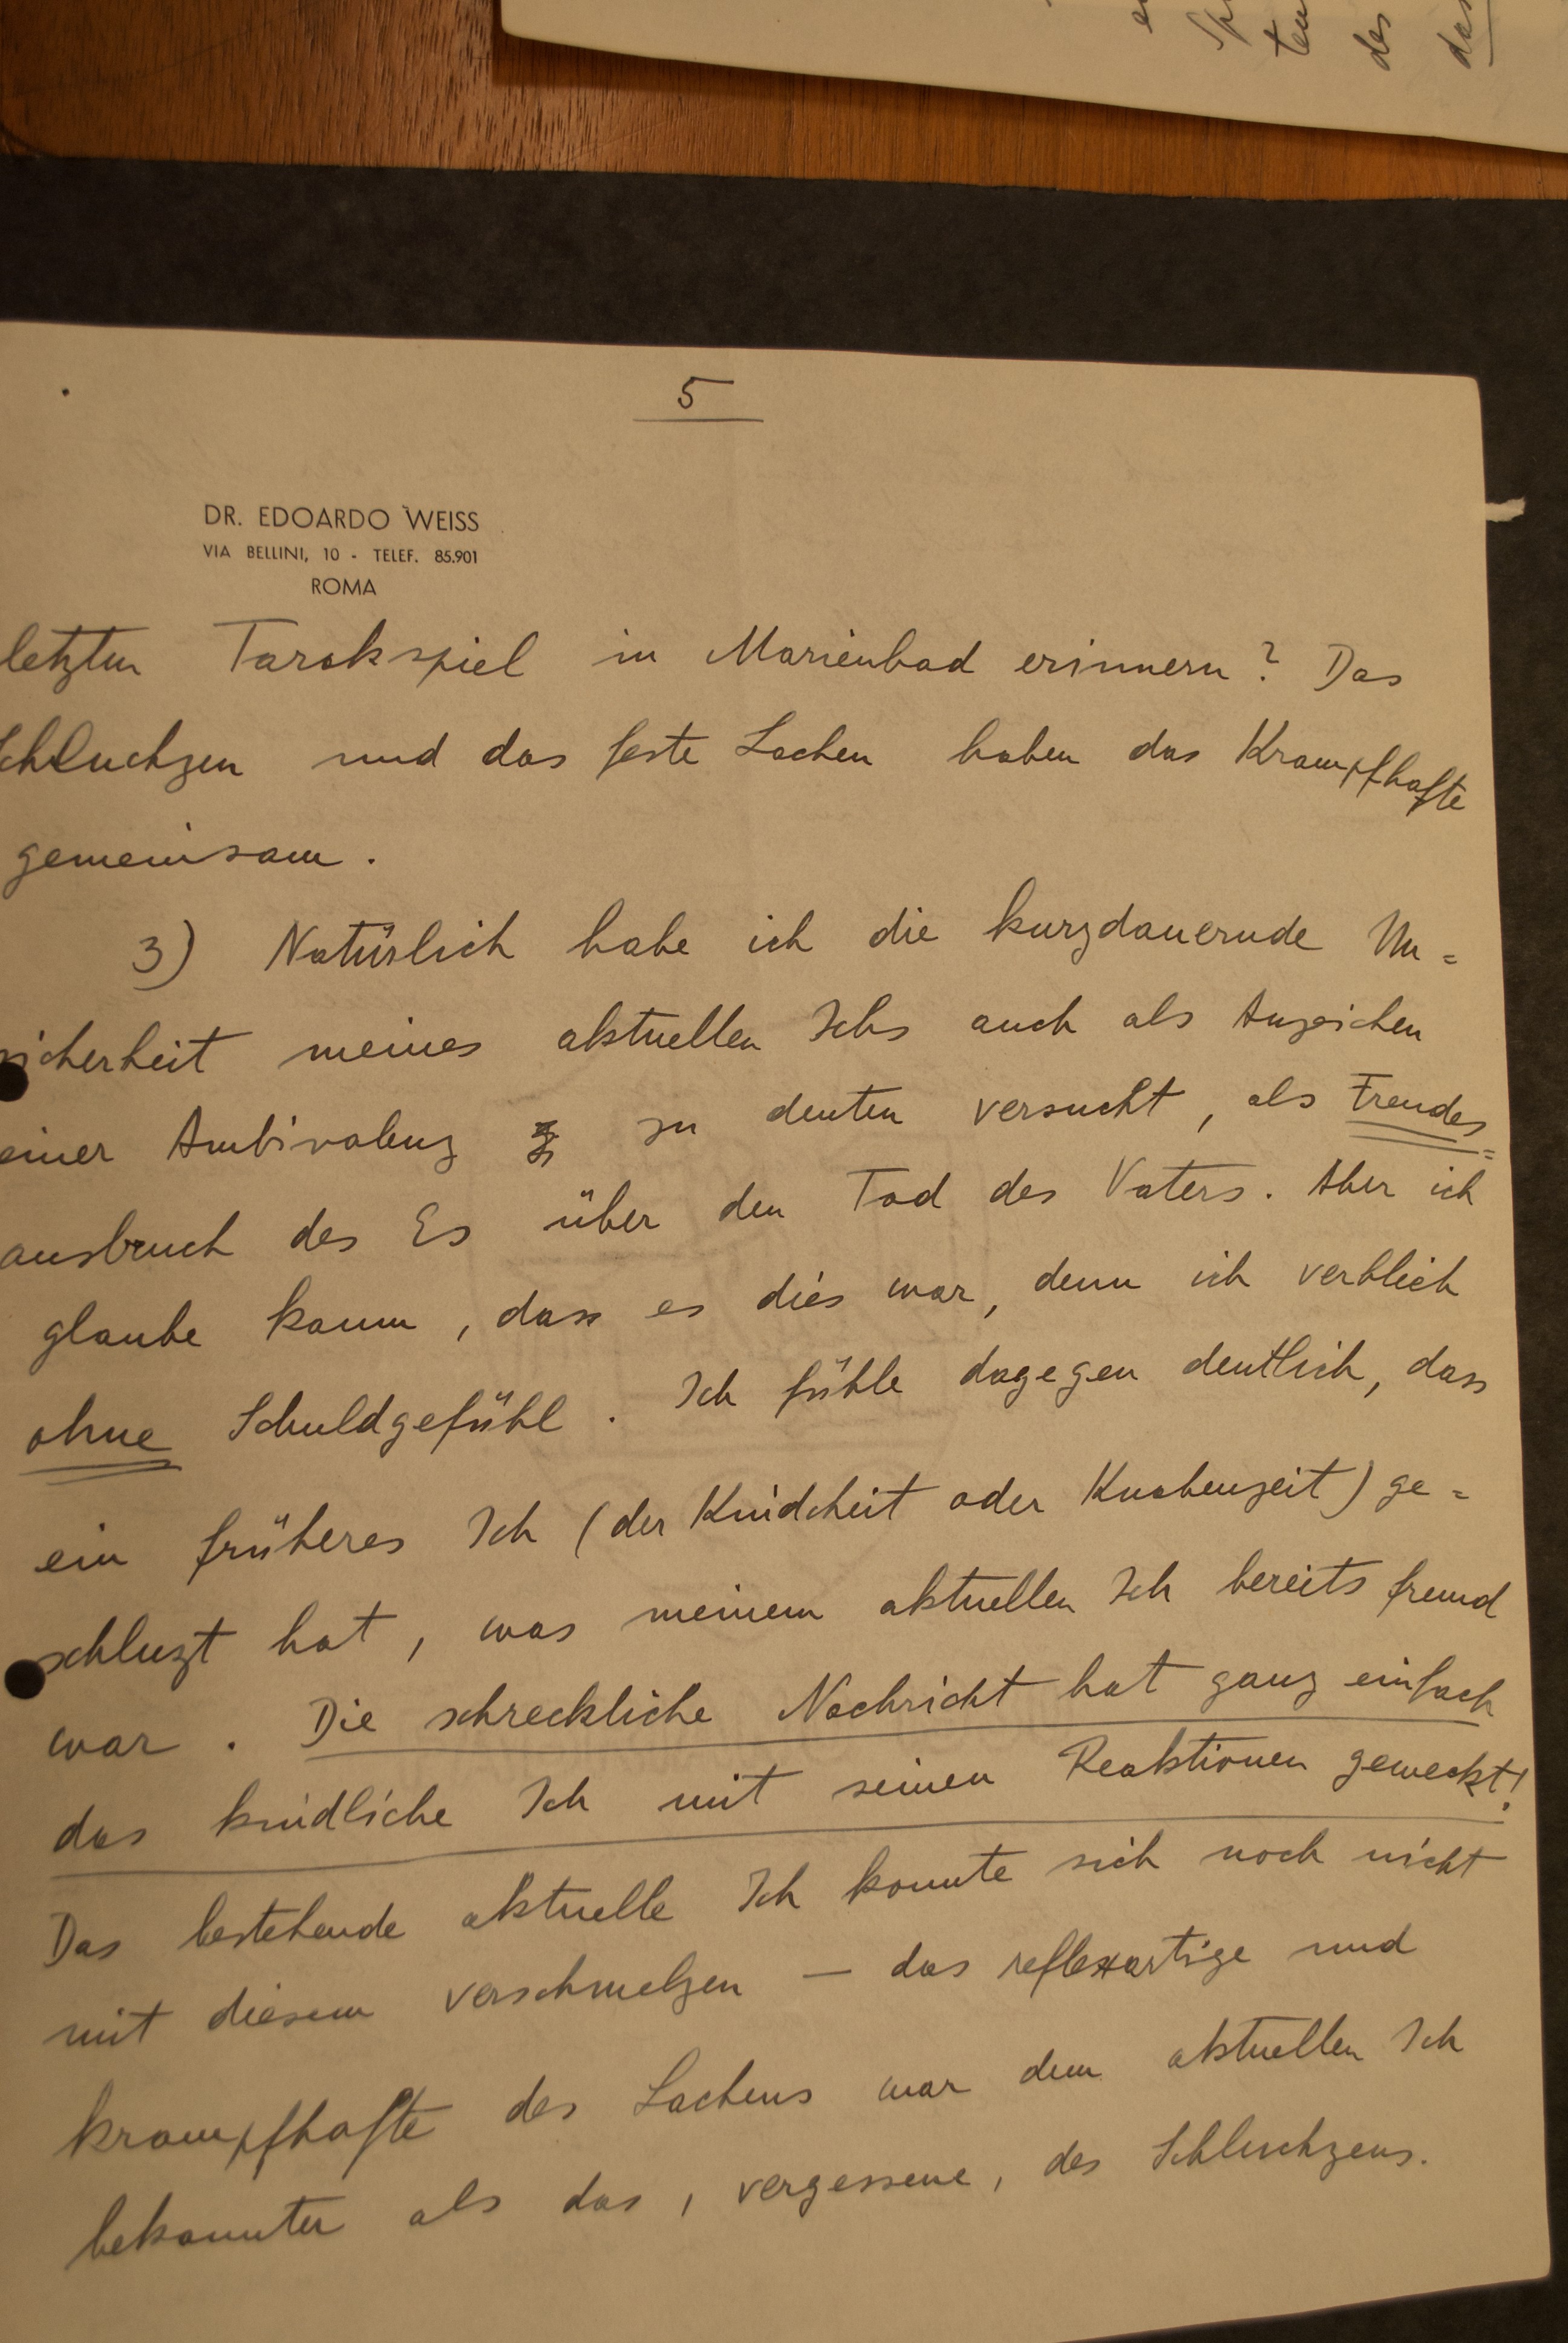 5
DR. EDOARDO WEISS
VIA BELLINI, 10 - TELEF. 85.901
ROMA
letzten Tarokspiel in Marienbad erinnern? Das
Schluchzen und das feste Lachen haben das Krampfhafte
gemeinsam.
3) Natürlich habe ich die kurzdauernde Un=
sicherheit meines aktuellen Ichs auch als Anzeichen
einer Ambivalenz zu deuten versucht, als Freudes=
ausbruch des Es über den Tod des Vaters. Aber ich
glaube kaum, dass es dies war, denn ich verblieb
ohne Schuldgefühl. Ich fühle dagegen deutlich, dass
ein früheres Ich (der Kindcheit oder Knabenzeit) ge=
schluzt hat, was meinem aktuellen Ich bereits fremd
war. Die schreckliche Nachricht hat ganz einfach
das kindliche Ich mit seinen Reaktionen geweckt!
Das bestehende aktuelle Ich konnte sich noch nicht
mit diesem verschmelzen — das reflexartige und
krampfhafte des Lachens war dem aktuellen Ich
bekannter als das, vergessene, des Schluchzens.
des
das